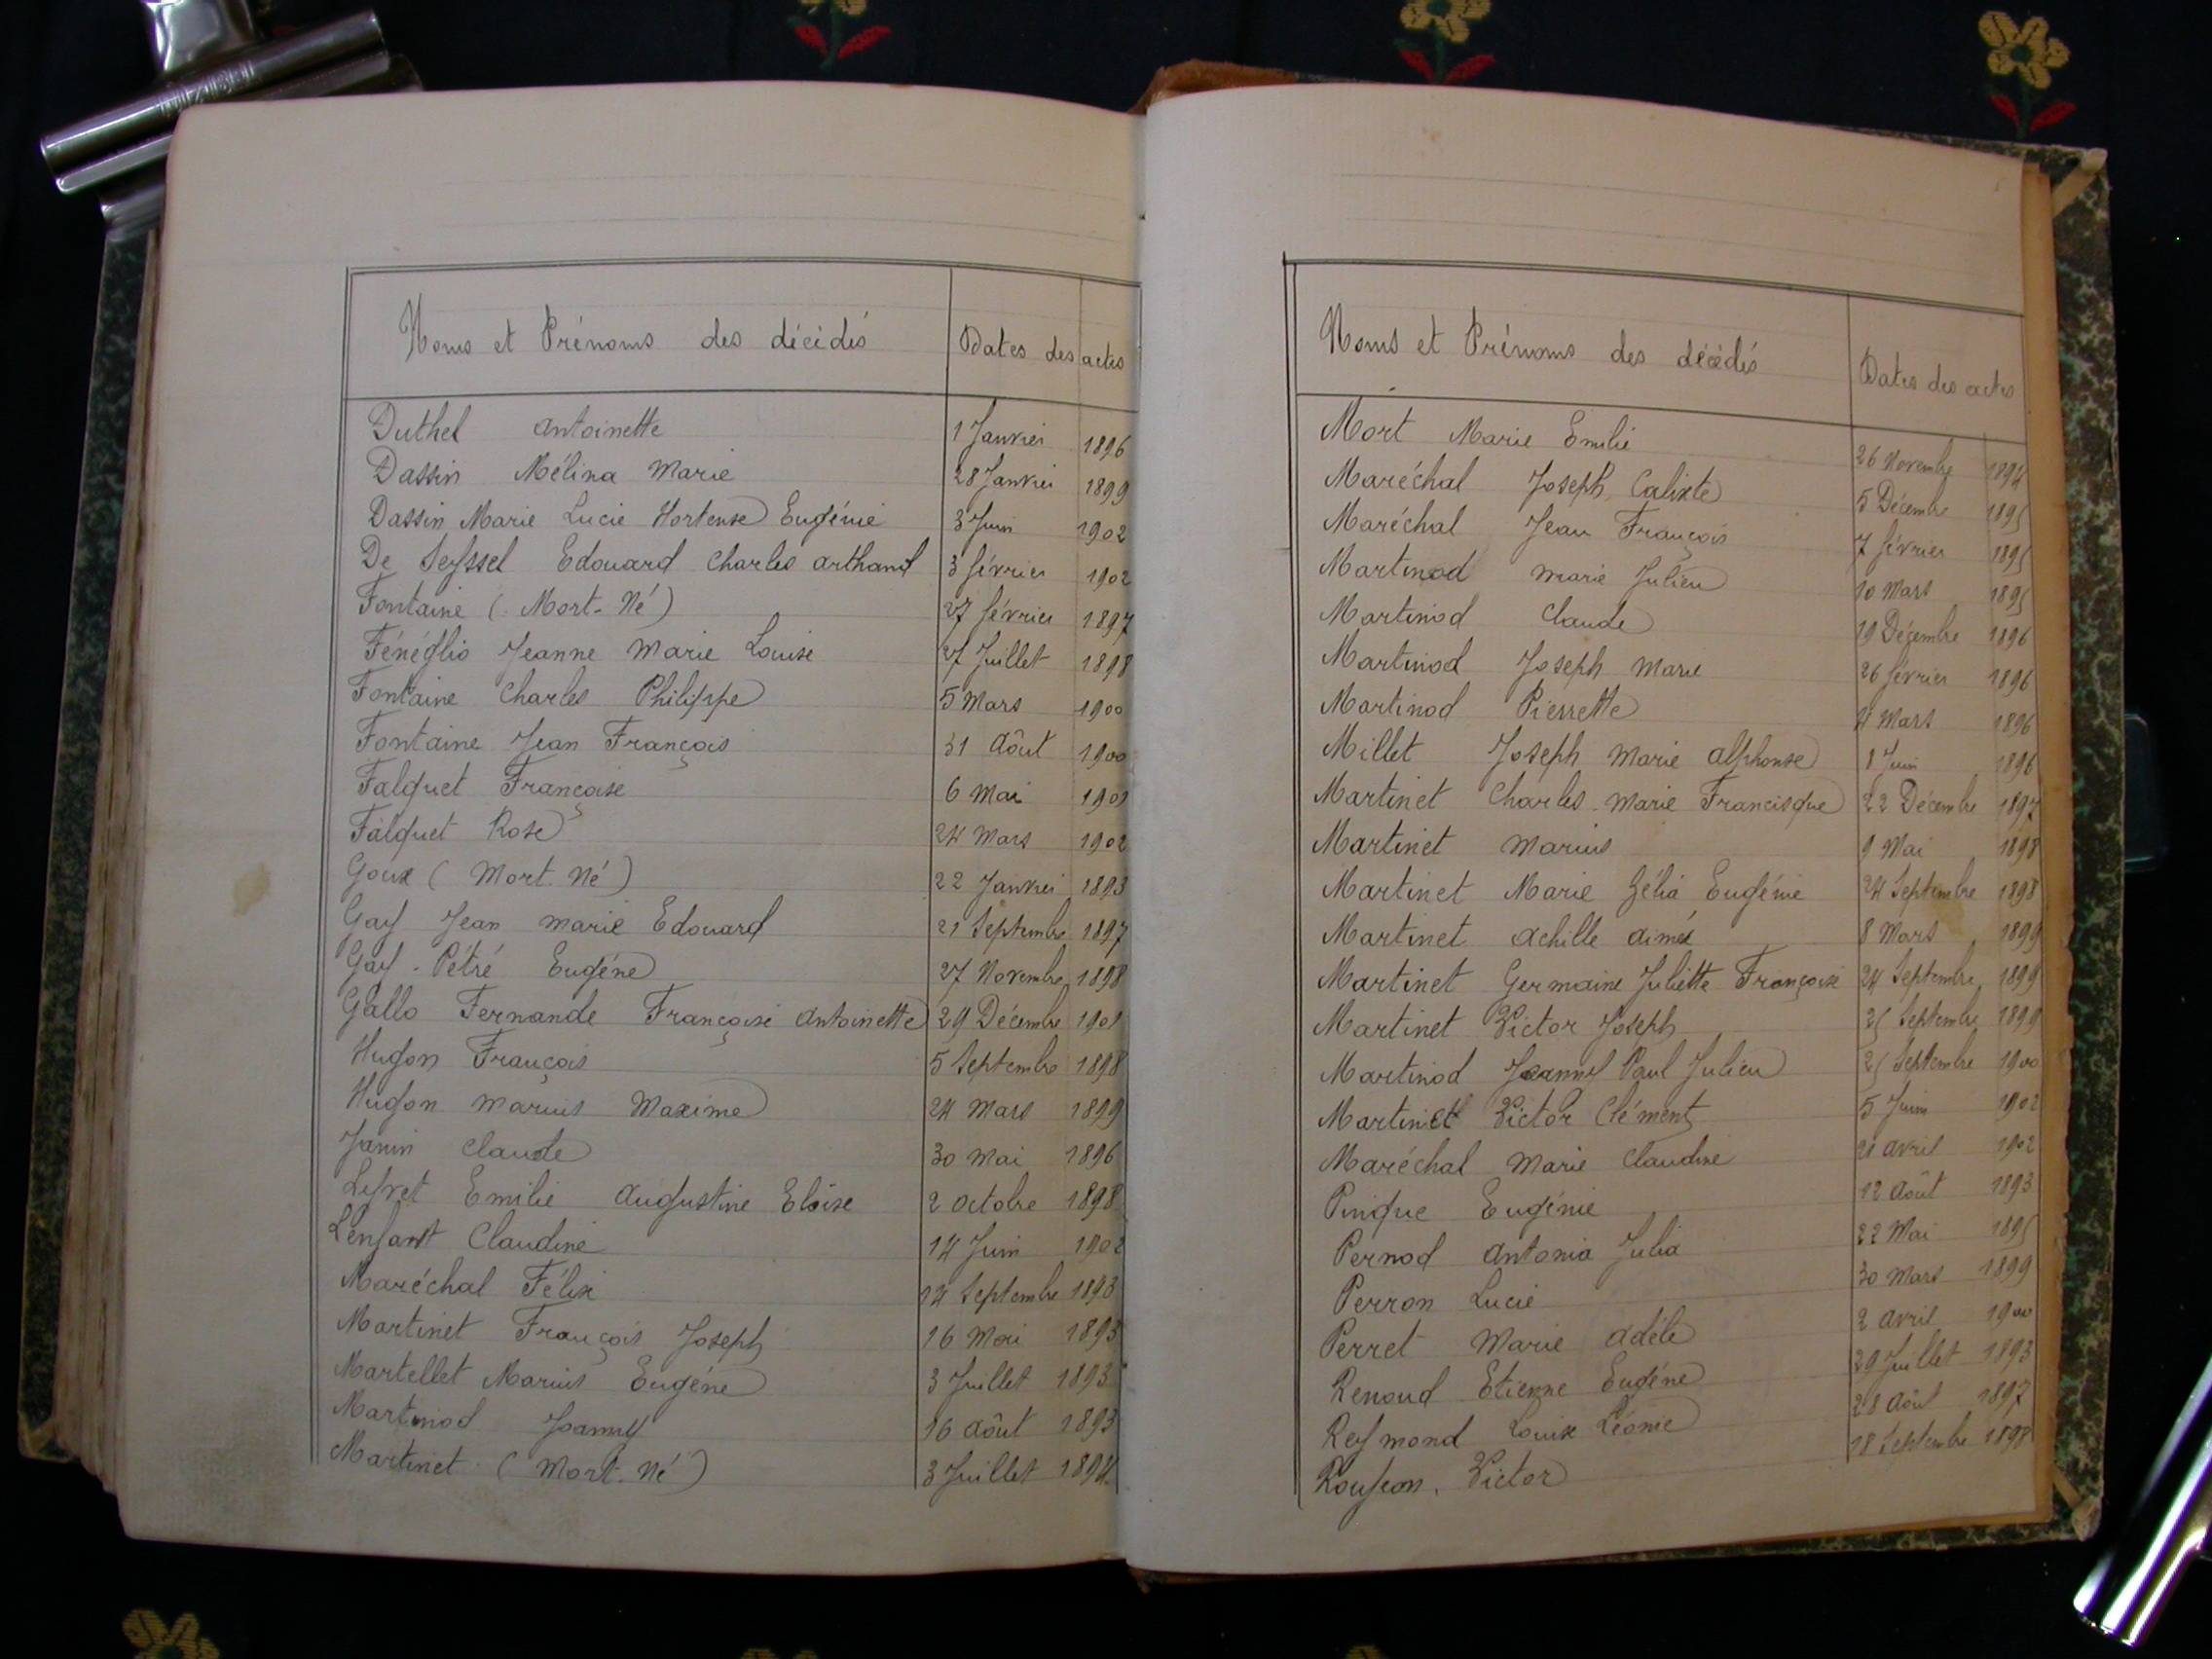 Noms et Prénoms des décédés Dates des actes
Duthel Antoinette 1 Janvier 1896
Dassin Mélina Marie 28 Janvier 1899
Dassin Marie Lucie Hortense Eugénie 3 Juin 1902
De Seyssel Edouard Charles Arthand 3 février 1902
Fontaine (Mort-Né) 27 février 1897
Fénéglio Jeanne Marie Louise 27 Juillet 1898
Fontaine Charles Philippe 5 Mars 1900
Fontaine Jean François 31 Août 1900
Falquet Françoise 6 Mai 1901
Falquet Rose 24 Mars 1902
Goux (Mort-Né) 22 Janvier 1893
Gay Jean Marie Edouard 21 Septembre 1897
Gay-Pétré Eugéne 27 Novembre 1898
Gallo Fernande Françoise Antoinette 29 Décembre 1901
Hugon François 5 Septembre 1898
Hugon Marius Maxime 24 Mars 1899
Janin Claude 30 Mai 1896
Leyret Emilie Augustine Eloise 2 Octobre 1898
Lenfant Claudine 14 Juin 1902
Maréchal Félix 14 Septembre 1893
Martinet François Joseph 16 Mai 1893
Martellet Marius Eugéne 3 Juillet 1893
Martinod Joanny 16 Août 1893
Martinet (Mort-Né) 3 Juillet 1894
Noms et Prénoms des décédés Dates des actes
Mort Marie Emilie 26 Novembre 1894
Maréchal Joseph Calixte 5 Décembre 1895
Maréchal Jean François 7 février 1895
Martinod Marie Julien 10 Mars 1895
Martinod Claude 19 Décembre 1896
Martinod Joseph Marie 26 février 1896
Martinod Pierrette 4 Mars 1896
Millet Joseph Marie Alphonse 8 Juin 1896
Martinet Charles Marie Francisque 22 Décembre 1897
Martinet Marius 9 Mai 1898
Martinet Marie Zélia Eugénie 24 Septembre 1898
Martinet Achille Aimé 8 Mars 1899
Martinet Germaine Juliette Françoise 24 Septembre 1899
Martinet Victor Joseph 25 Septembre 1899
Martinod Joanny Paul Julien 25 Septembre 1900
Martinet Victor Clément 5 Juin 1902
Maréchal Marie Claudine 21 Avril 1902
Pinque Eugénie 12 Août 1893
Pernod Antonia Julia 22 Mai 1895
Perron Lucie 30 Mars 1899
Perret Marie Adéle 2 Avril 1900
Renoud Etienne Eugéne 29 Juillet 1893
Reymond Louise Léonie 28 Août 1897
Victor 18 Septembre 1898